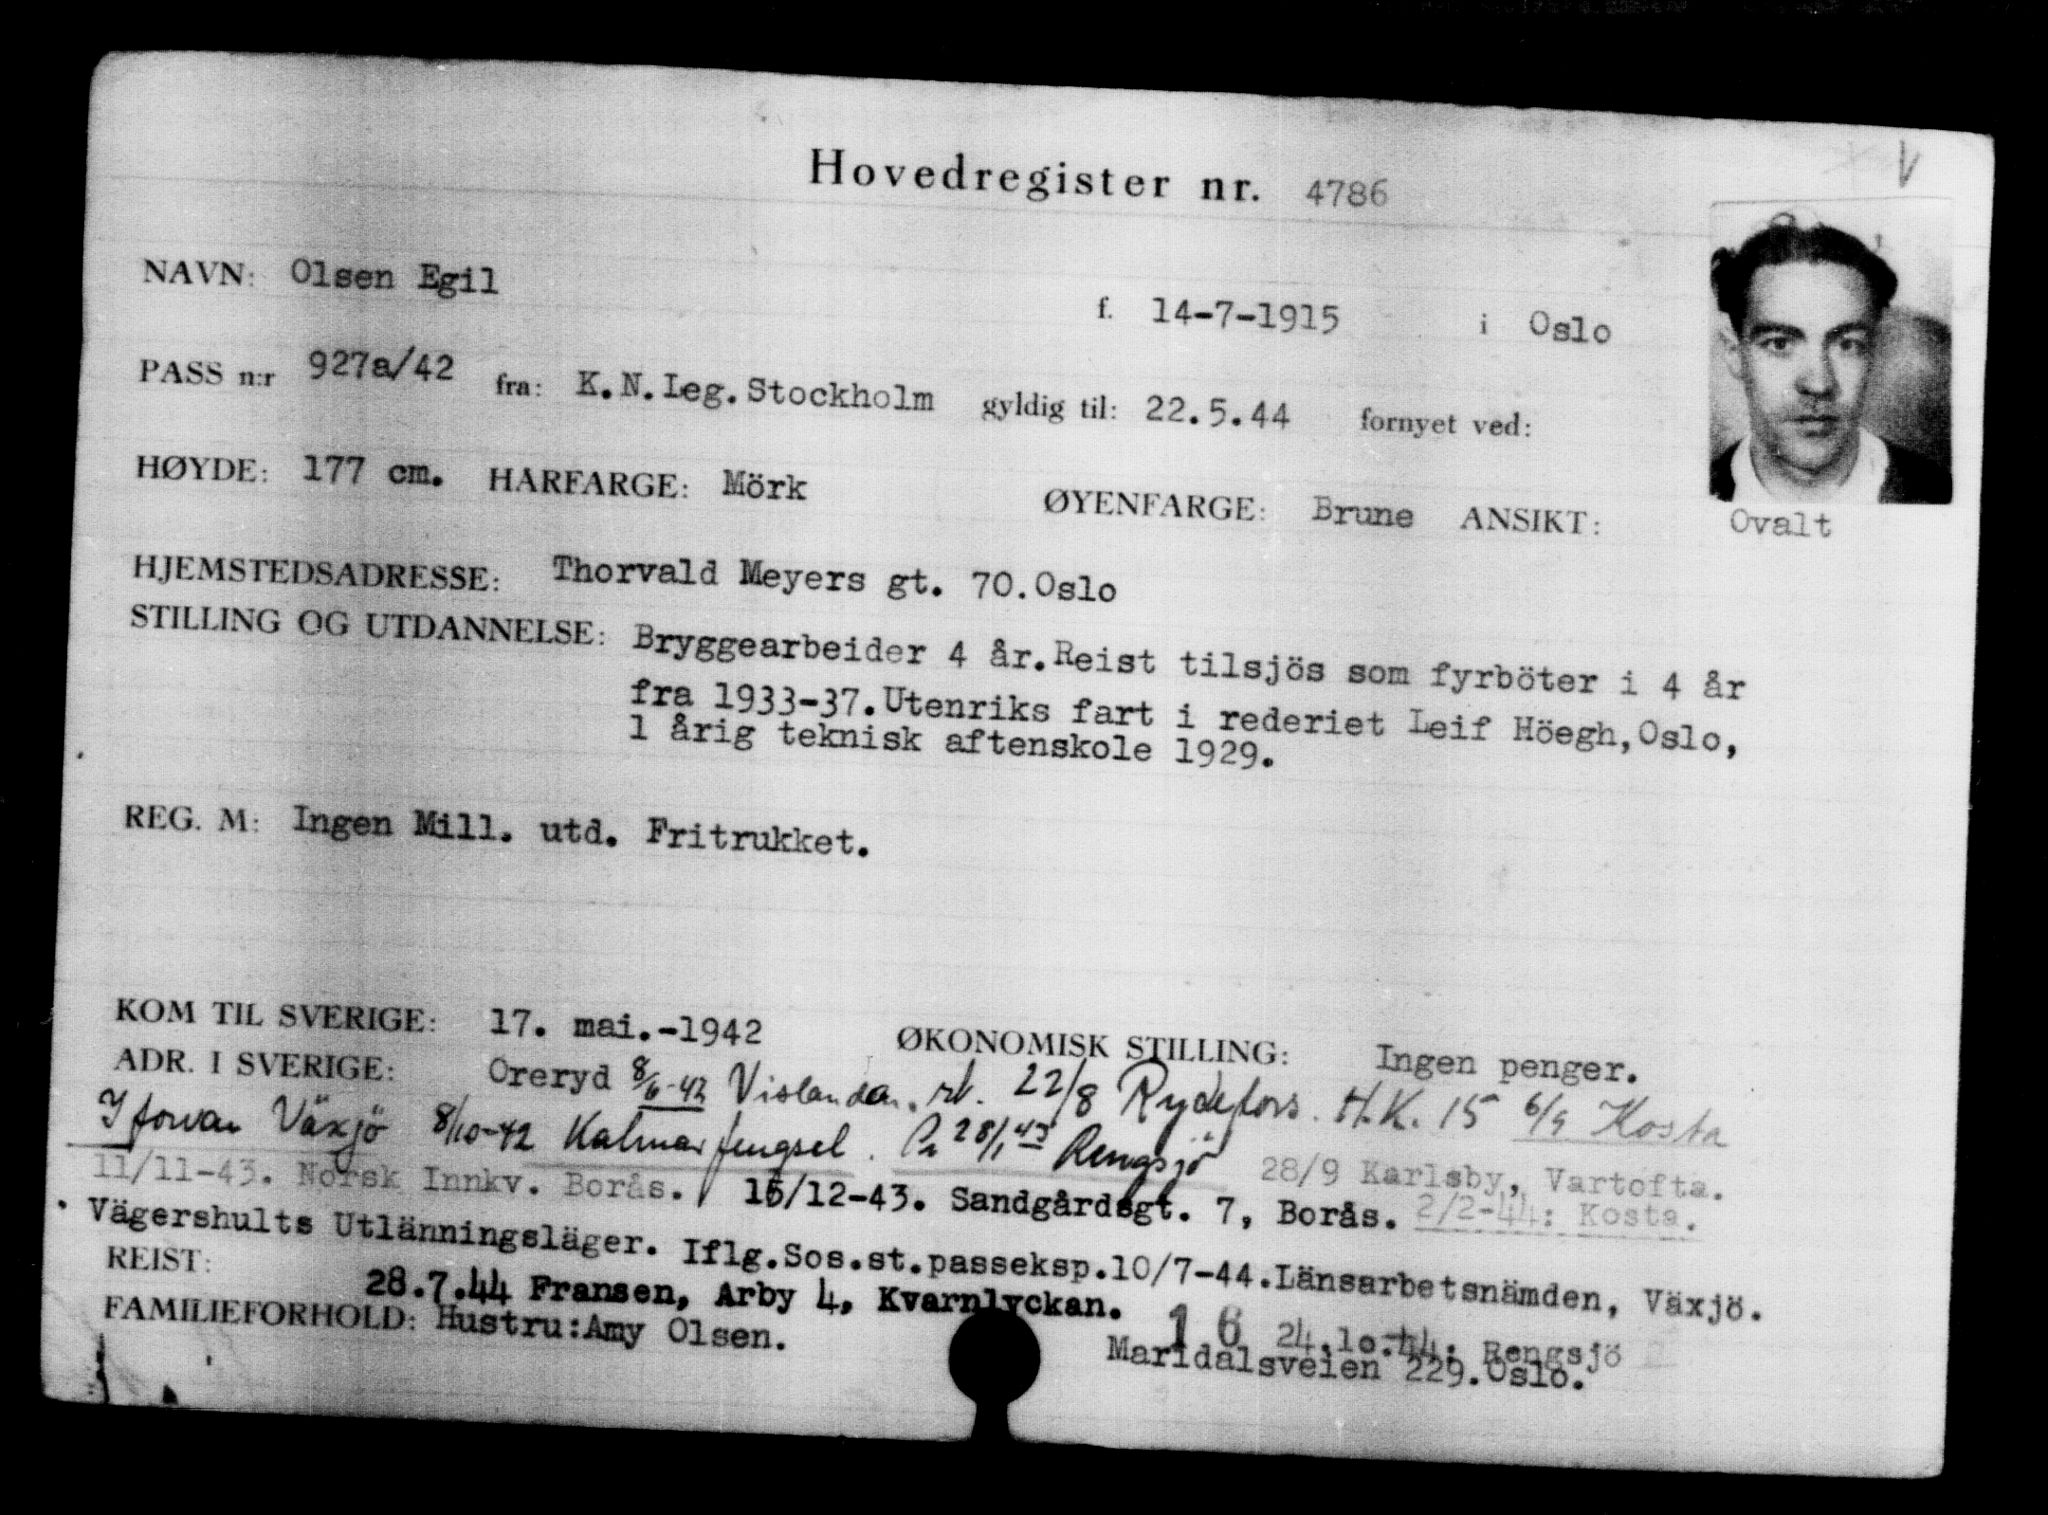 Hovedregister nr. 4786
V
NAVN: Olsen Egil
f. 14-7-1915 i Oslo
PASS n:r 927a/42 fra: K.N.Leg.Stockholm gyldig til: 22.5.44 fornyet ved:
HØYDE: 177 cm. HÅRFARGE: Mörk ØYENFARGE: Brune ANSIKT: Ovalt
HJEMSTEDSADRESSE: Thorvald Meyers gt. 70.Oslo
STILLING OG UTDANNELSE: Bryggearbeider 4 år.Reist tilsjös som fyrböter i 4 år
fra 1933-37.Utenriks fart i rederiet Leif Höegh,Oslo,
1 årig teknisk aftenskole 1929.
REG. M: Ingen Mill. utd. Fritrukket.
KOM TIL SVERIGE: 17. mai.-1942 ØKONOMISK STILLING: Ingen penger.
ADR. I SVERIGE: Öreryd 8/6-42 Vislanda. 22/8 Rydefors. H.K. 15 6/9 Kosta
I forvar Växjö 8/10-42 Kalmar fengsel. 28/1 43 Rengsjö 28/9 Karlsby, Vartofta.
11/11-43. Norsk Innkv. Borås. 15/12-43. Sandgårdsgt. 7, Borås. 2/2-44: Kosta.
Vägershults Utlänningsläger. Iflg.Sos.st.passeksp.10/7-44.Länsarbetsnämden, Växjö.
REIST:
28.7.44 Fransen, Arby 4, Kvarnlyckan.
16 24.10.44: Rengsjö
FAMILIEFORHOLD: Hustru:Amy Olsen. Maridalsveien 229.Oslo.